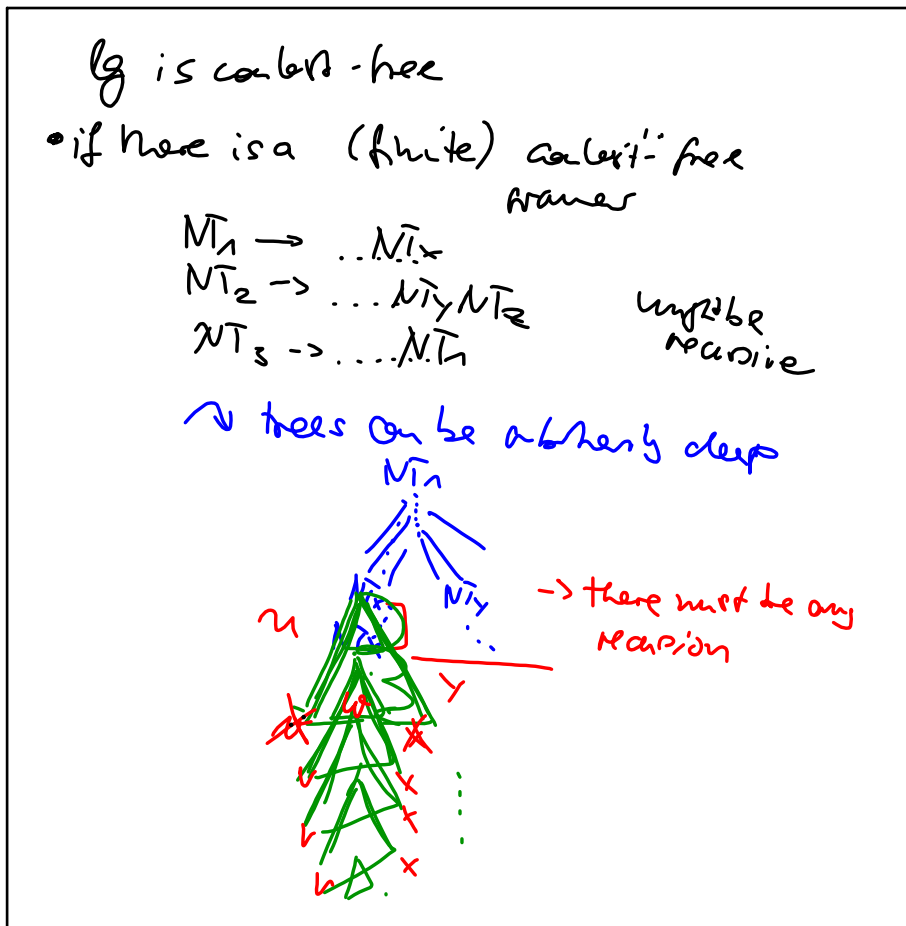 lg is context-free
• if there is a (finite) context-free
grammar
NT₁ → ...NTₓ
NT₂ → ....NTyNTz
might be
NT₃ → .......NT₁
recursive
~> trees can be arbitrarily deep
NT₁
NTy
→ there must be any
recursion
u
w
y
x
v
x
v
x
v
x